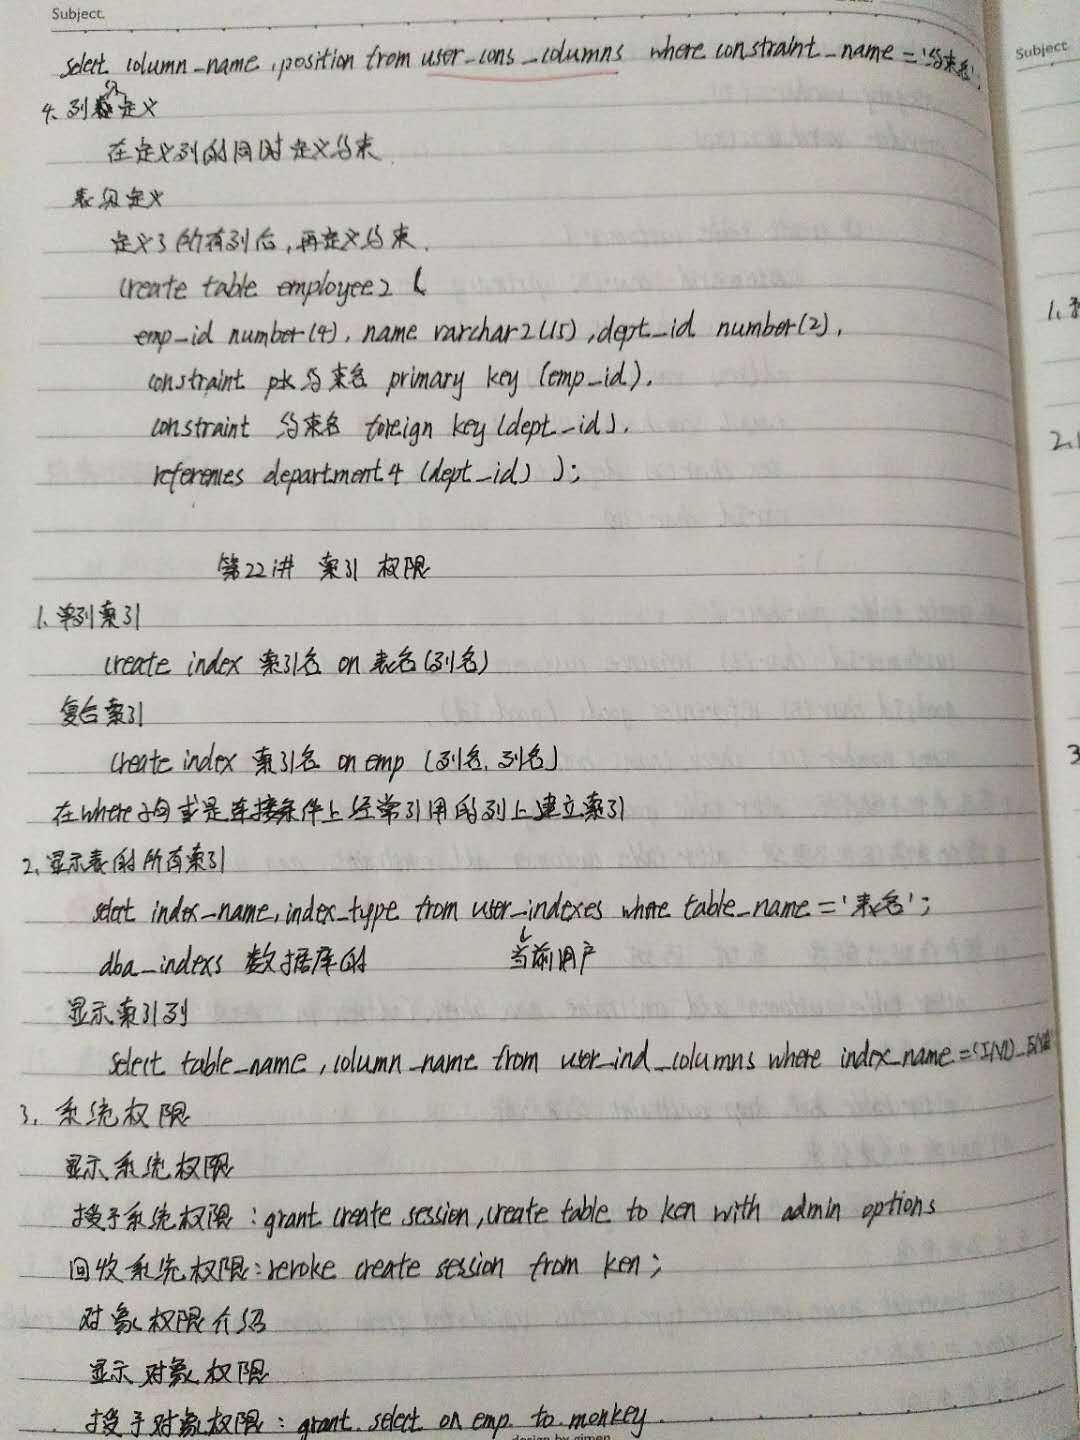 Subject.
select column_name, position from user_cons_columns where constraint_name='约束名';
4. 列级定义
在定义列的同时定义约束.
表级定义
定义了所有列后,再定义约束.
create table employee2 (
emp_id number(4), name varchar2(15), dept_id number(2),
constraint pk约束名 primary key (emp_id),
constraint 约束名 foreign key (dept_id),
references department4 (dept_id) );
第22讲 索引 权限
1. 单列索引
create index 索引名 on 表名(列名)
复合索引
create index 索引名 on emp (列名, 列名)
在where子句或是连接条件上经常引用的列上建立索引
2. 显示表的所有索引
select index_name, index_type from user_indexes where table_name='表名';
dba_indexs 数据库的 当前用户
显示索引列
select table_name, column_name from user_ind_columns where index_name='IND_
3. 系统权限
显示系统权限
授予系统权限:grant create session, create table to ken with admin options
回收系统权限:revoke create session from ken;
对象权限介绍
显示对象权限
授予对象权限:grant select on emp to monkey
design by gimen
Subject
1.
2.
3